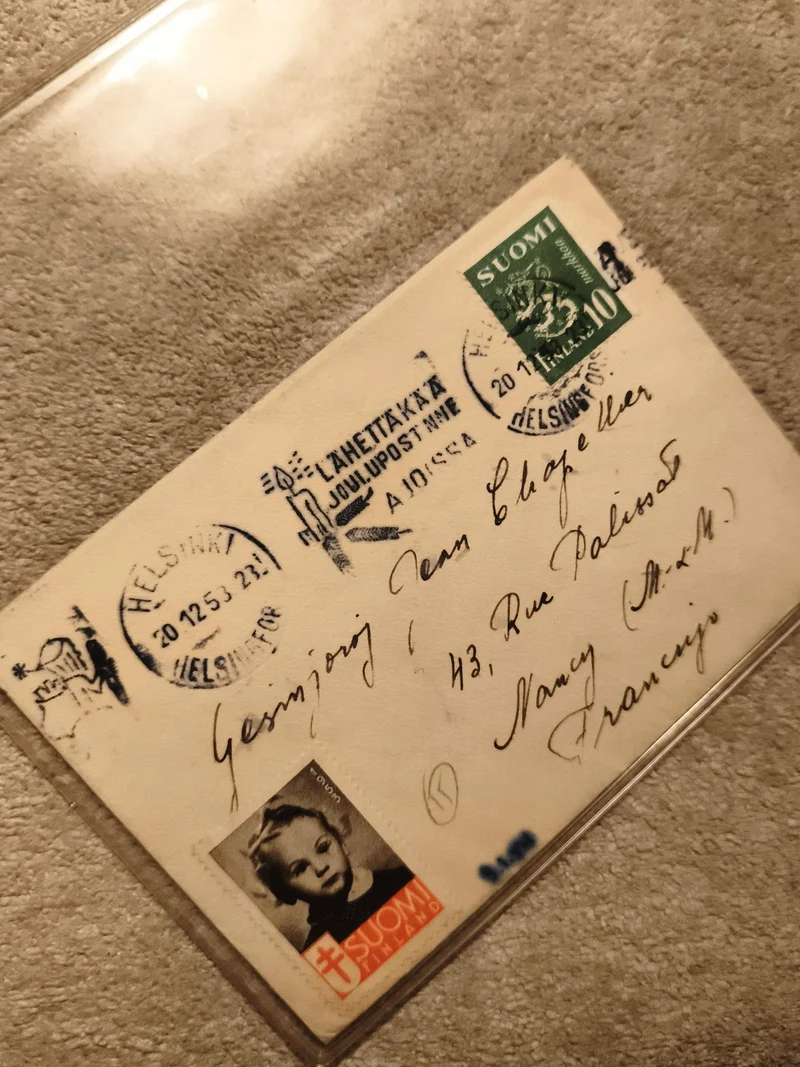 SUOMI
10 markkaa
FINLAND
HELSINKI
20.12.53
HELSINGFORS
LÄHETTÄKÄÄ
JOULUPOSTINNE
AJOISSA
HELSINKI
20.12.53 23
HELSINGFOR
Gesinjoroj Jean Chapellier
43, Rue Palissot
Nancy (M.&M.)
Francujo
1953
SUOMI
FINLAND